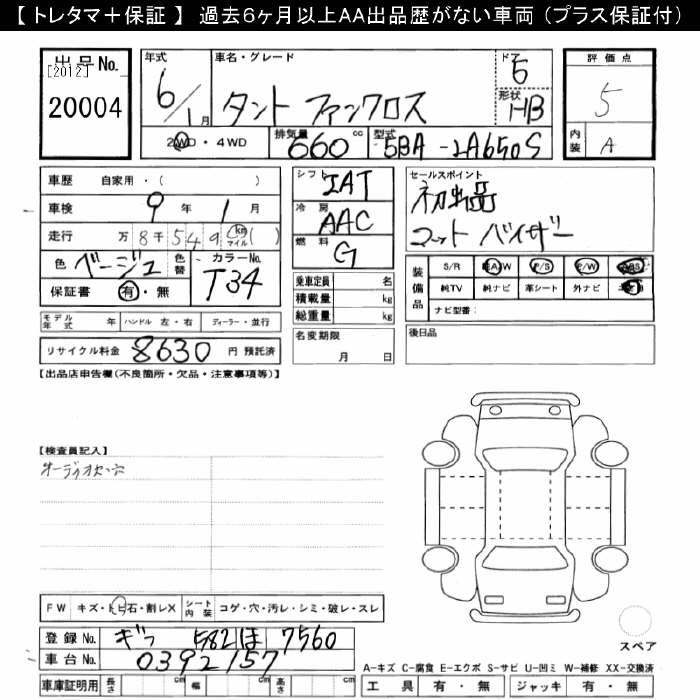 【 トレタマ＋保証 】 過去６ヶ月以上ＡＡ出品歴がない車両（プラス保証付）
出品No.
[2012]
20004
年式 車名・グレード ドア 5
6/1月 タント ファンクロス 形状 HB
2WD・4WD 排気量 660 cc 型式 5BA-LA650S
評価点
5
内装 A
車歴 自家用・( )
車検 9年 1月
走行 万8千549 km マイル ( )
色 ベージュ 色替 カラーNo. T34
保証書 有・無
モデル年式 年 ハンドル 左・右 ディーラー・並行
リサイクル料金 8630 円 預託済
シフト IAT
冷房 AAC
燃料 G
乗車定員 名
積載量 kg
総重量 kg
名変期限
月 日
セールスポイント
初出品
マット バイザー
装備品 S/R A/W P/S P/W ABS
純TV 純ナビ 革シート 外ナビ
ナビ型番:
後日品
【出品店申告欄(不良箇所・欠品・注意事項等)】
【検査員記入】
オーディオ穴
FW キズ・トビ石・割レX シート内装 コゲ・穴・汚レ・シミ・破レ・スレ
登録No. ギフ 582 ほ 7560
車台No. 0392157
車庫証明用 長さ cm 幅 cm 高さ cm
スペア
A-キズ C-腐食 E-エクボ S-サビ U-凹ミ W-補修 XX-交換済
工具 有・無 ジャッキ 有・無